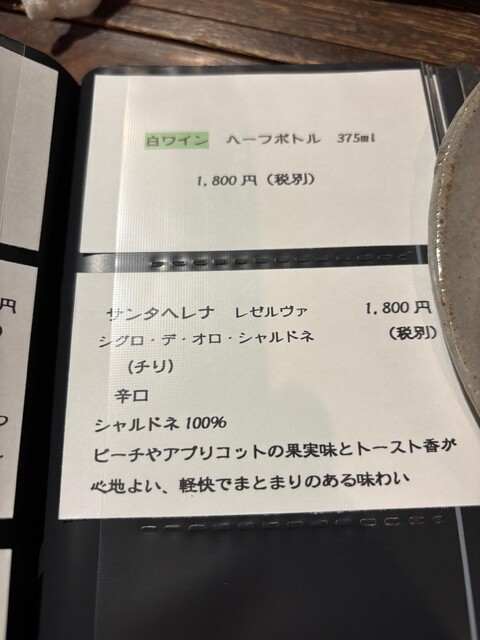 白ワイン ハーフボトル 375ml
1,800円（税別）
サンタヘレナ レゼルヴァ 1,800円
シグロ・デ・オロ・シャルドネ （税別）
（チリ）
辛口
シャルドネ100%
ピーチやアプリコットの果実味とトースト香が
心地よい、軽快でまとまりのある味わい
円